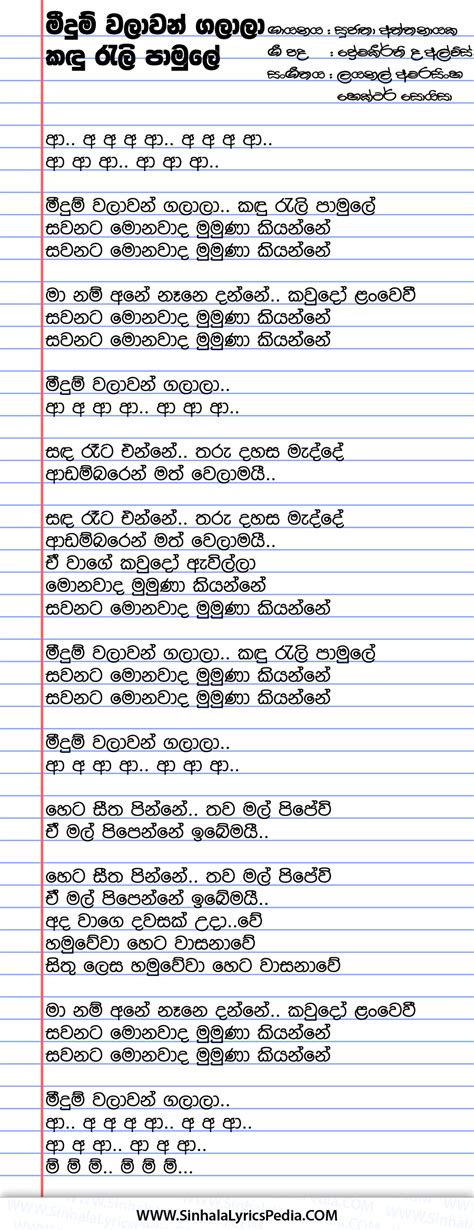 මීදුම් වලාවන් ගලාලා
කඳු රැලි පාමුලේ
ගායනය : සුජාතා අත්තනායක
ගී පද : ප්‍රේමකීර්ති ද අල්විස්
සංගීතය : ලයනල් අමරසිංහ
ආ.. අ අ අ ආ.. අ අ අ ආ..
ආ ආ ආ.. ආ ආ ආ..
මීදුම් වලාවන් ගලාලා.. කඳු රැලි පාමුලේ
සවනට මොනවාද මුමුණා කියන්නේ
සවනට මොනවාද මුමුණා කියන්නේ
මා නම් අනේ නෑනෙ දන්නේ.. කවුදෝ ළංවෙවී
සවනට මොනවාද මුමුණා කියන්නේ
සවනට මොනවාද මුමුණා කියන්නේ
මීදුම් වලාවන් ගලාලා..
ආ අ ආ ආ.. ආ ආ ආ..
සඳ රෑට එන්නේ.. තරු දහස මැද්දේ
ආඩම්බරෙන් මත් වෙලාමයී..
සඳ රෑට එන්නේ.. තරු දහස මැද්දේ
ආඩම්බරෙන් මත් වෙලාමයී..
ඒ වාගේ කවුදෝ ඇවිල්ලා
මොනවාද මුමුණා කියන්නේ
සවනට මොනවාද මුමුණා කියන්නේ
මීදුම් වලාවන් ගලාලා.. කඳු රැලි පාමුලේ
සවනට මොනවාද මුමුණා කියන්නේ
සවනට මොනවාද මුමුණා කියන්නේ
මීදුම් වලාවන් ගලාලා..
ආ අ ආ ආ.. ආ ආ ආ..
හෙට සීත පින්නේ.. තව මල් පිපේවි
ඒ මල් පිපෙන්නේ ඉබේමයී..
හෙට සීත පින්නේ.. තව මල් පිපේවි
ඒ මල් පිපෙන්නේ ඉබේමයී..
අද වාගෙ දවසක් උදා..වේ
හමුවේවා හෙට වාසනාවේ
සිතු ලෙස හමුවේවා හෙට වාසනාවේ
මා නම් අනේ නෑනෙ දන්නේ.. කවුදෝ ළංවෙවී
සවනට මොනවාද මුමුණා කියන්නේ
සවනට මොනවාද මුමුණා කියන්නේ
මීදුම් වලාවන් ගලාලා..
ආ.. අ අ අ ආ.. අ අ ආ..
ආ අ ආ.. ආ අ ආ..
ම් ම් ම්.. ම් ම් ම්...
WWW.SinhalaLyricsPedia.COM